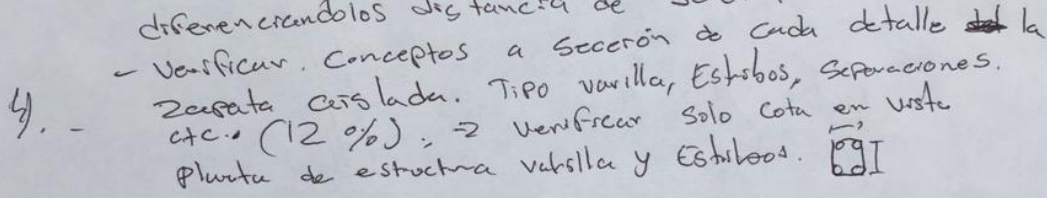 diferenciandolos distancia de
- Verificar. Conceptos a Sección de Cada detalle la
Zapata aislada. Tipo varilla, Estribos, Separaciones.
4). - etc.. (12 %). => Verificar Solo Cota en vista
Planta de estructura varilla y Estribos.